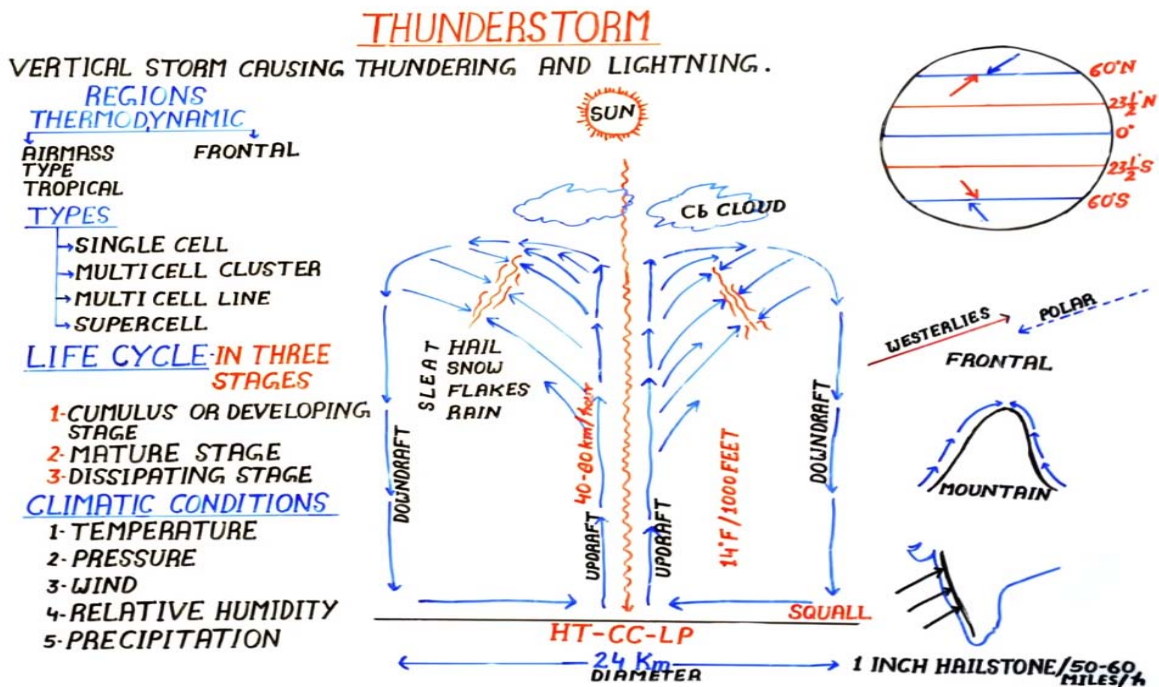 THUNDERSTORM
VERTICAL STORM CAUSING THUNDERING AND LIGHTNING.
REGIONS
THERMODYNAMIC
AIRMASS
TYPE
TROPICAL
FRONTAL
TYPES
SINGLE CELL
MULTICELL CLUSTER
MULTICELL LINE
SUPERCELL
LIFE CYCLE-IN THREE
STAGES
1-CUMULUS OR DEVELOPING
STAGE
2-MATURE STAGE
3-DISSIPATING STAGE
CLIMATIC CONDITIONS
1-TEMPERATURE
2-PRESSURE
3-WIND
4-RELATIVE HUMIDITY
5-PRECIPITATION
SUN
Cb CLOUD
SLEAT
HAIL
SNOW
FLAKES
RAIN
DOWNDRAFT
40-80 km/hour
UPDRAFT
UPDRAFT
14°F/1000 FEET
DOWNDRAFT
SQUALL
HT-CC-LP
24 Km
DIAMETER
60°N
23½°N
0°
23½°S
60°S
WESTERLIES
POLAR
FRONTAL
MOUNTAIN
1 INCH HAILSTONE/50-60
MILES/h